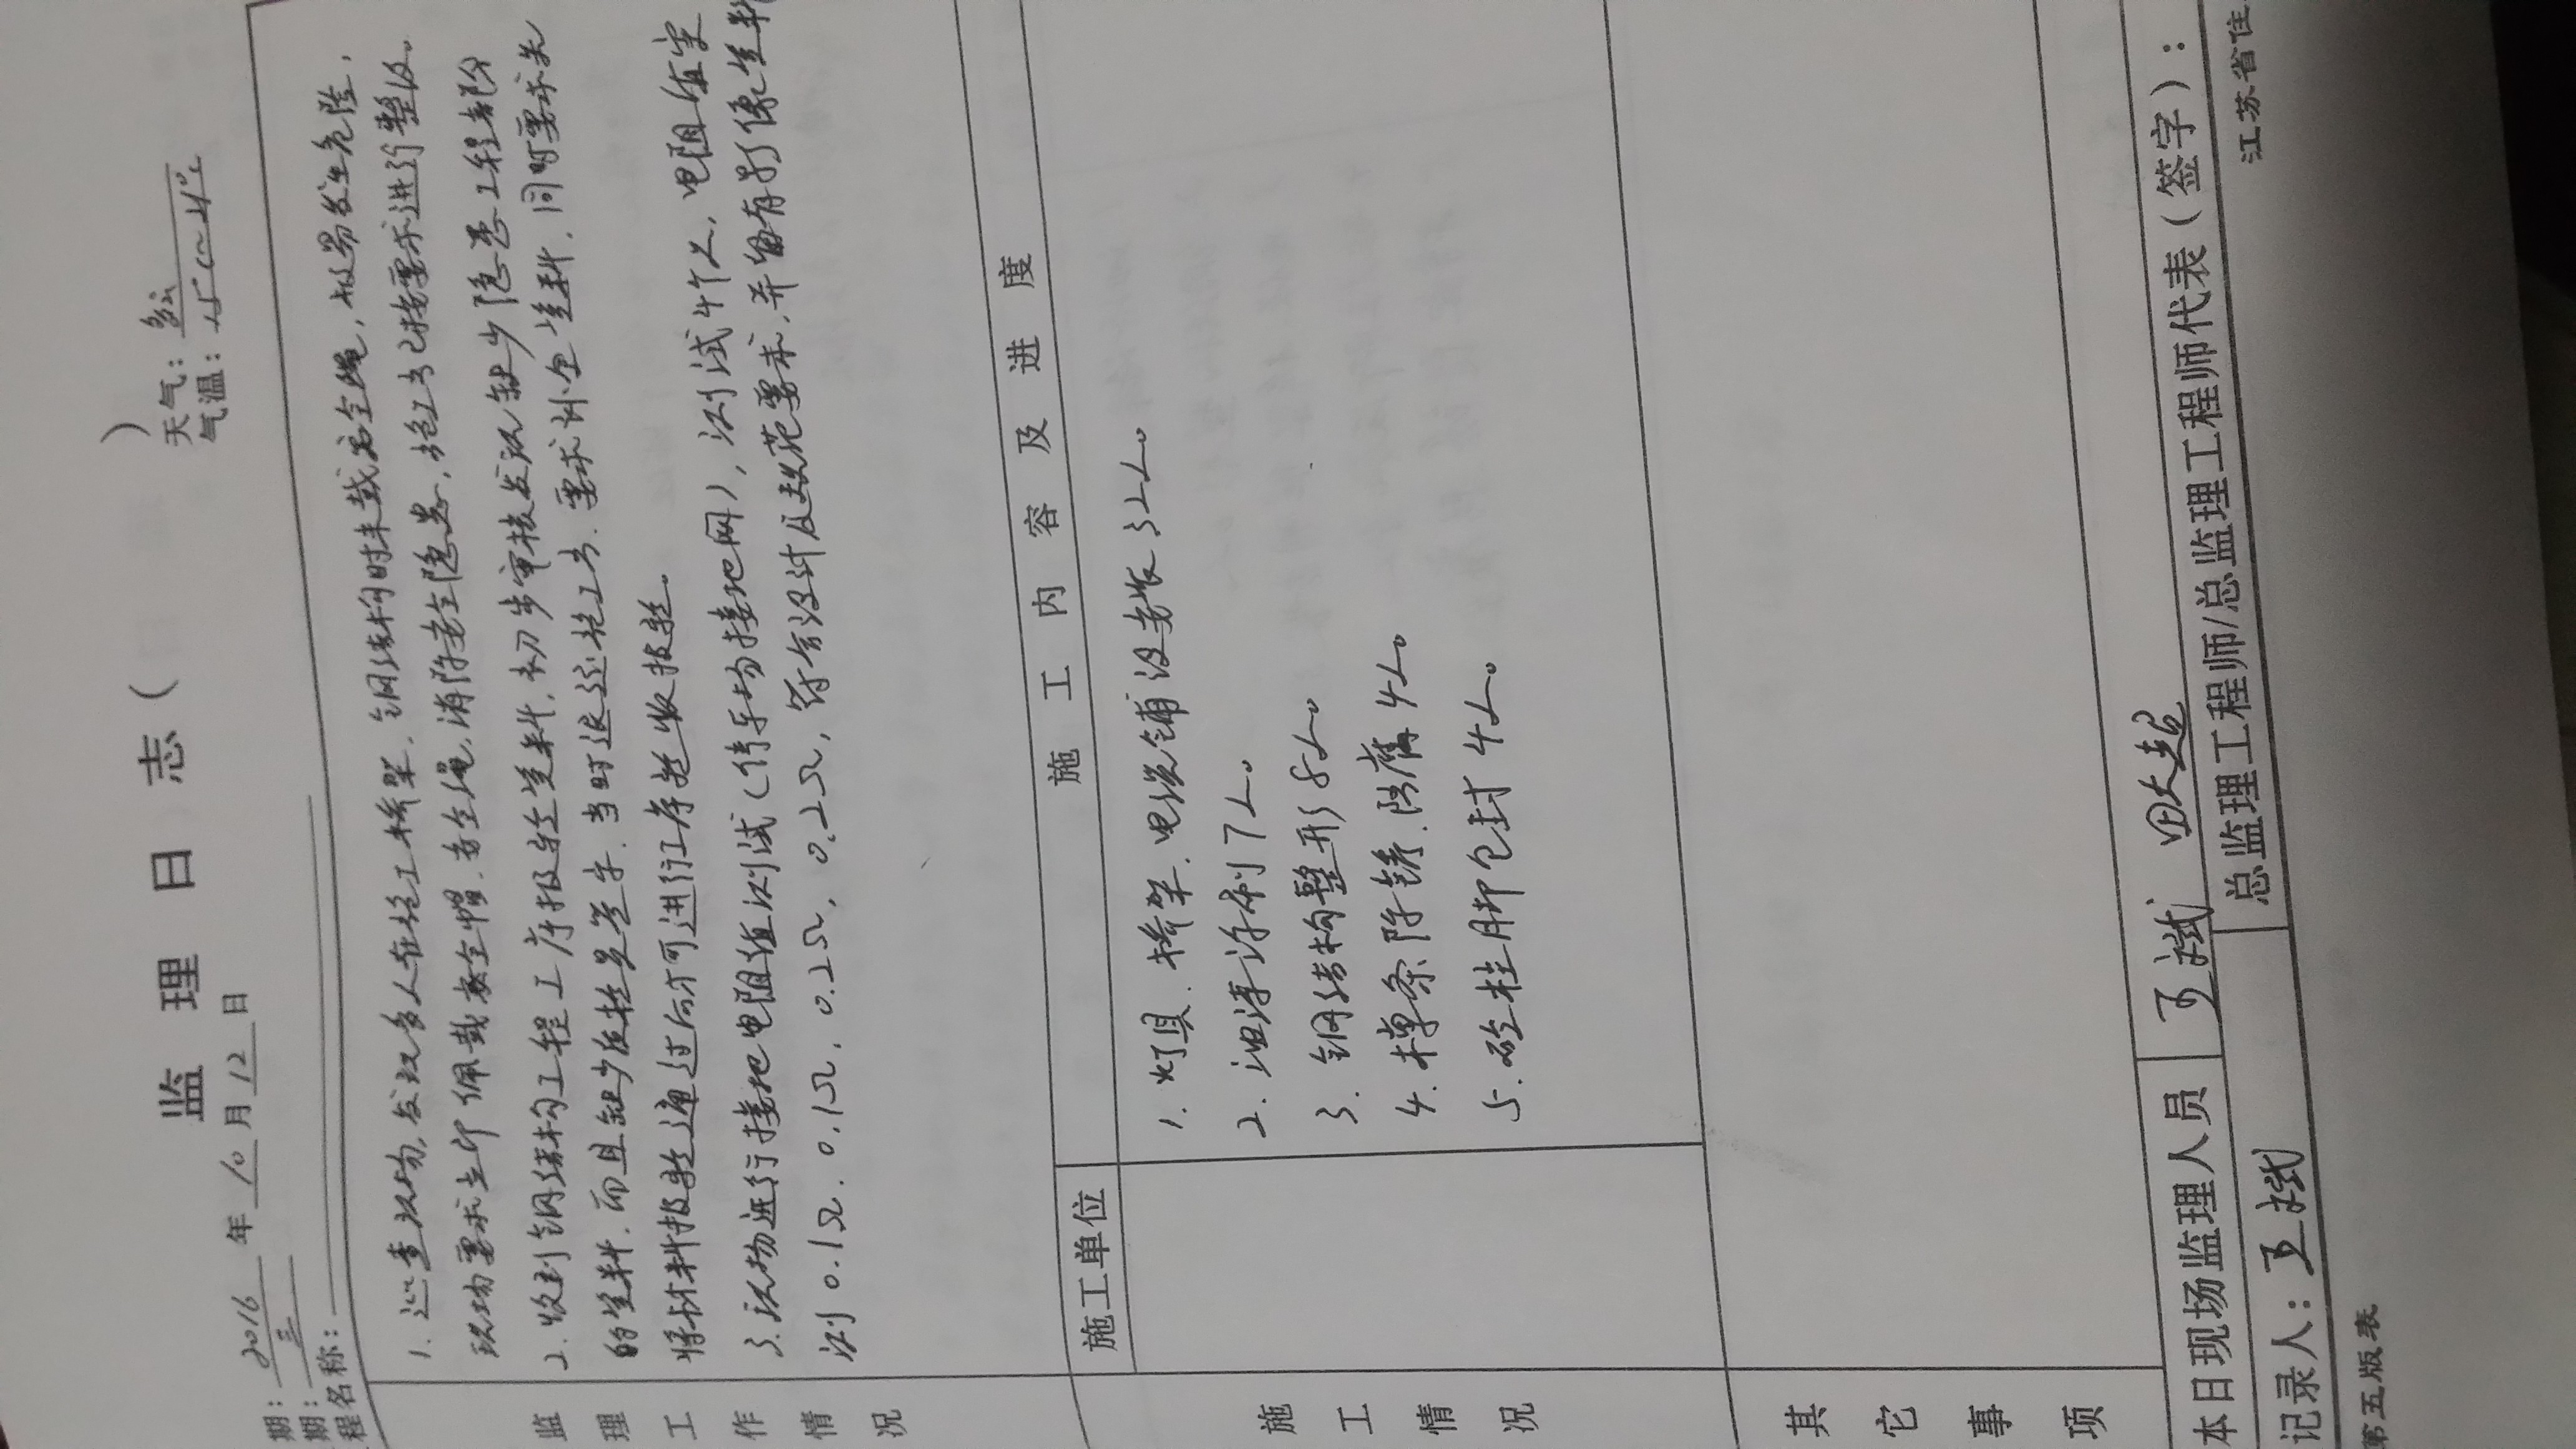 监 理 日 志 (            )
期: 2016 年 10 月 12 日 天气: 多云
期: 三 气温: 15℃~24℃
程名称:
监理工作情况
1. 巡查现场,发现多人在施工桥架、钢结构时未戴安全绳,极易发生危险,
现场要求立即佩戴安全帽、安全绳,消除安全隐患,施工方已按要求进行整改。
2. 收到钢结构工程工序报验资料,初步审核发现缺少隐患工程部分
的资料,而且缺少质检员签字,当时退还施工方,要求补全资料,同时要求先
将材料报验通过后方可进行工序验收报验。
3. 现场进行接地电阻值测试(停车场接地网),测试4个人,电阻值实
测 0.1Ω、0.1Ω、0.2Ω、0.2Ω,符合设计及规范要求,并留有影像资料
施工情况
施工单位 施 工 内 容 及 进 度
1. 灯具、桥架、电缆铺设安装 32人。
2. 油漆涂刷 7人。
3. 钢结构整形 8人。
4. 檩条除锈、防腐 4人。
5. 砼柱脚包封 4人。
其它事项
本日现场监理人员 王斌 田大超
记录人: 王斌 总监理工程师/总监理工程师代表(签字):
第五版表 江苏省住